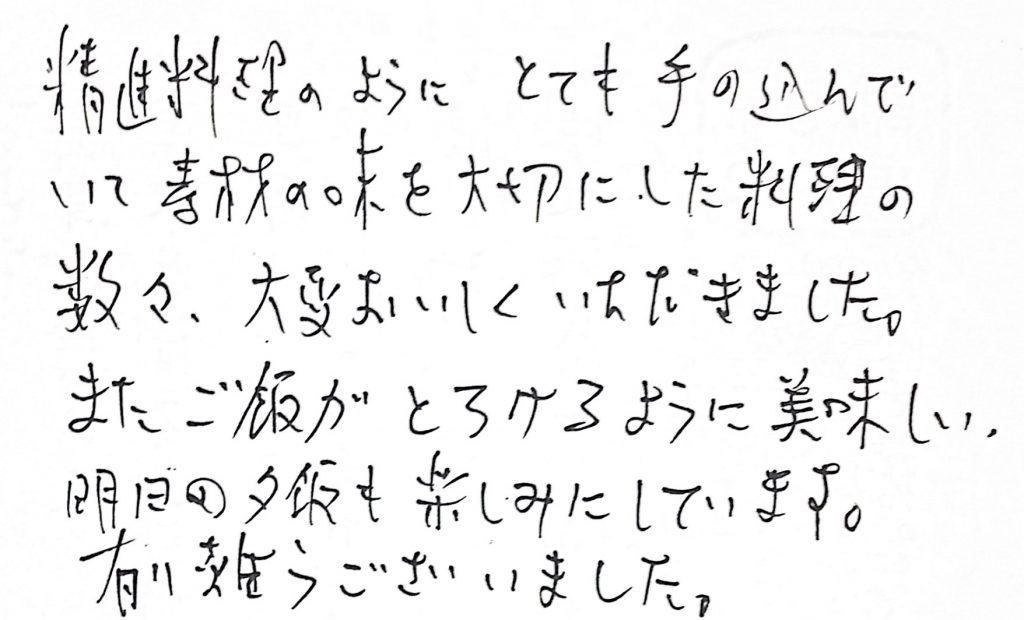 精進料理のように とても手の込んで
いて素材の味を大切にした料理の
数々、大変おいしくいただきました。
またご飯がとろけるように美味しい、
明日の夕飯も楽しみにしています。
有り難うございました。